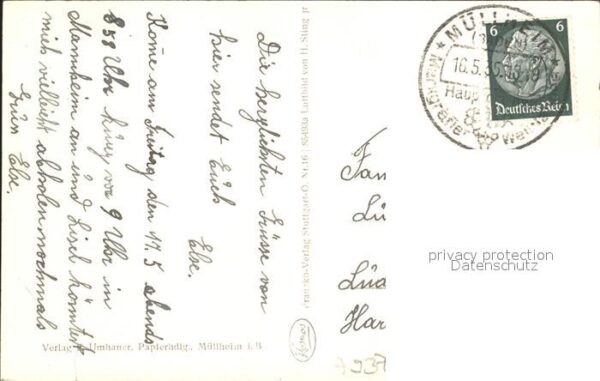 Die herzlichsten Grüsse von
hier sendet Euch
Else.
Kome am Freitag den 17.5 abends
8 58 Uhr kurz vor 9 Uhr in
Mannheim an und Lisel könntet
mich vielleicht abholen nochmals
Gruss Else.
Verlag Umhauer, Papierhdlg., Müllheim i. B.
Franckh-Verlag Stuttgart-O. Luftbild von
MÜLLHEIM
16.5.35
Haup
Markgräfler
6 6
Deutsches Reich
Fam
Lu
Lud
Har
privacy protection
Datenschutz